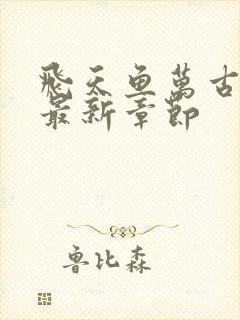 飛天魚萬古
最新章節
魯比森